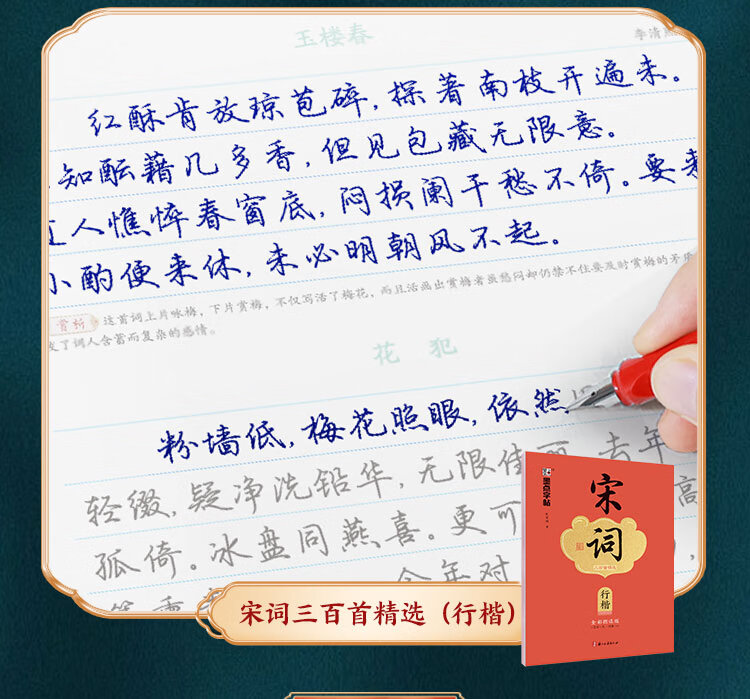 玉楼春
李清照
红酥肯放琼苞碎，探著南枝开遍未。
知酝藉几多香，但见包藏无限意。
人憔悴春窗底，闷损阑干愁不倚。要来
小酌便来休，未必明朝风不起。
赏析 这首词上片咏梅，下片赏梅，不仅写活了梅花，而且活画出赏梅者虽愁闷却仍禁不住要及时赏梅的矛盾
了词人含蓄而复杂的感情。
花 犯
粉墙低，梅花照眼，依然
轻缀，疑净洗铅华，无限佳丽。去年
孤倚。冰盘同燕喜。更可 高
今年对
墨点字帖
宋词
行楷
宋词三百首精选（行楷）